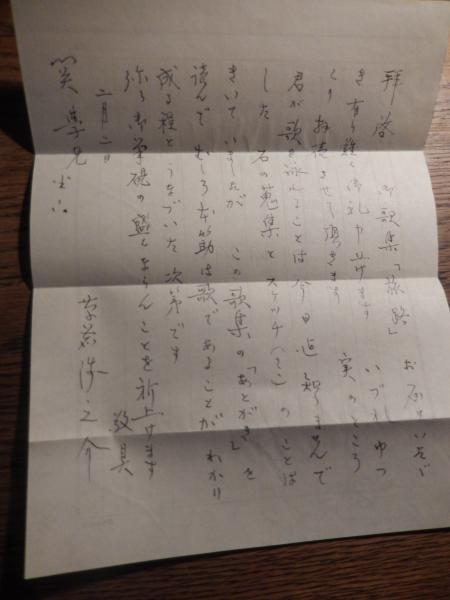 拝啓 御歌集「旅路」お届けいただ
き有り難く御礼申上げます いづれゆつ
くり拝読させて頂きます 実のところ
君が歌を詠れることは今日迄知りませんで
した 石の蒐集とスケッチ のことは
きいていましたが この歌集の「あとがき」を
読んで むしろ本筋は歌であることがわかり
成る程とうなづいた次第です
弥々御筆硯の盛んならんことを祈上げます
敬具
二月二日
之介
学兄